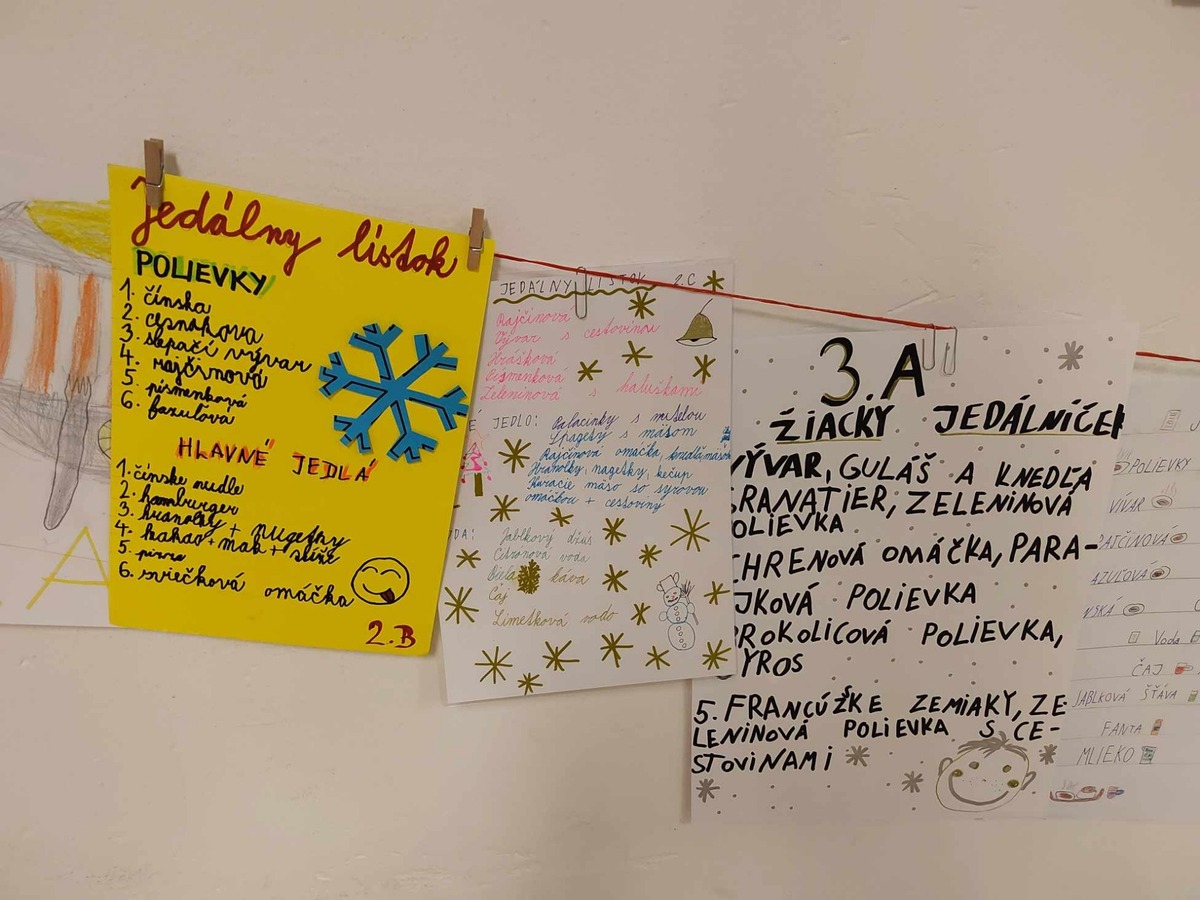 Jedálny lístok
POLIEVKY
1. čínska
2. cesnakova
3. slepačí vývar
4. rajčinová
5. písmenková
6. fazuľová
HLAVNÉ JEDLÁ
1. čínske nudle
2. hamburger
3. hranolky + nugetky
4. kakao + mak +
5. pizza
6. sviečková omáčka
2.B
JEDÁLNY LÍSTOK 2.C
Rajčinová
Vývar s cestovinou
Hrášková
Písmenková
Zeleninová s haluškami
JEDLO: Palacinky s nutelou
Špagety s mäsom
Rajčinová omáčka, knedľa, mäso
Hranolky, nagetky, kečup
Kuracie mäso so syrovou
omáčkou + cestoviny
DA: Jablkový džús
Citronová voda
Biela káva
Čaj
Limetková voda
3.A
ŽIACKY JEDÁLNIČEK
VÝVAR, GULÁŠ A KNEDĽA
GRANATIER, ZELENINOVÁ
POLIEVKA
CHRENOVÁ OMÁČKA, PARA-
JKOVÁ POLIEVKA
BROKOLICOVÁ POLIEVKA,
GYROS
5. FRANCÚŽSKE ZEMIAKY, ZE-
LENINOVÁ POLIEVKA S CE-
STOVINAMI
POLIEVKY
VÍVAR
RAJČINOVÁ
AZUĽOVÁ
NSKÁ
Voda
ČAJ
JABLKOVÁ ŠŤÁVA
FANTA
MLIEKO
A